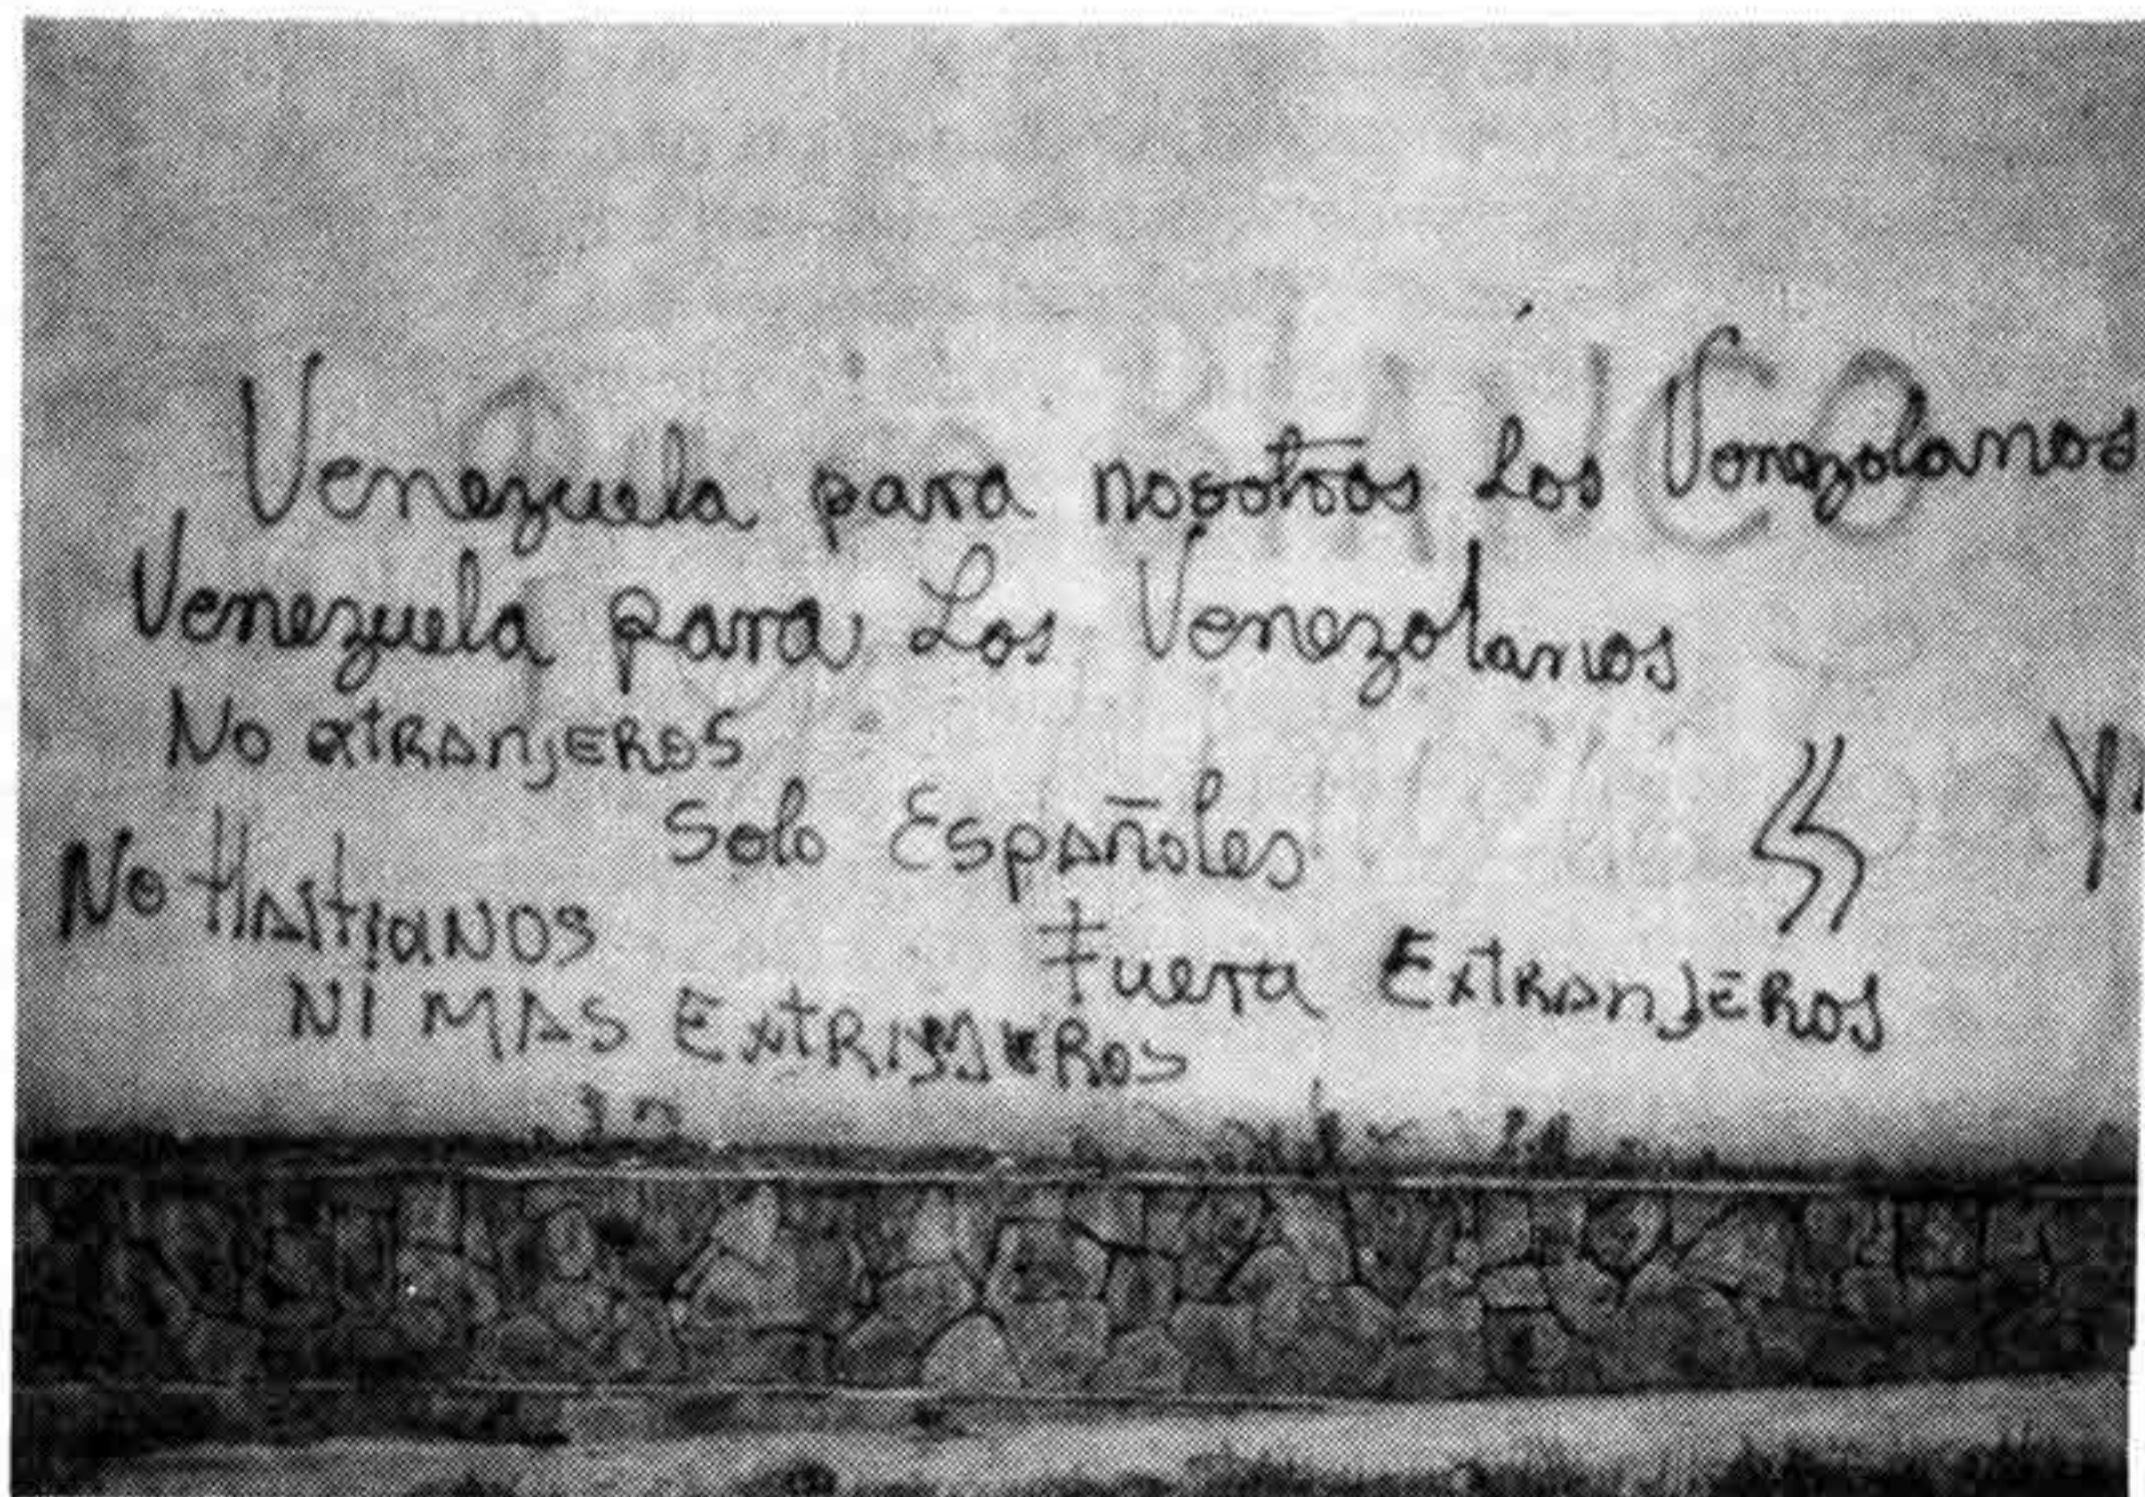 Venezuela para nosotros Los Venezolanos
Venezuela para Los Venezolanos
No extRAnjEROS
Solo EspAñoles
No HAitiaNOS
Fuera ExtRAnJEROS
NI MAS